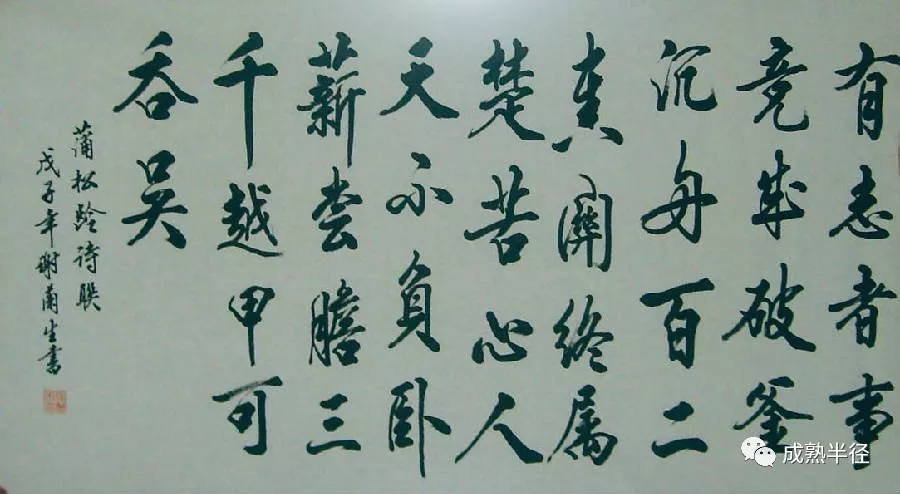 有志者事
竟成破釜
沉舟百二
秦關终属
楚苦心人
天不負卧
薪尝膽三
千越甲可
吞吴
蒲松龄诗联
戊子年谢生书
成熟半径